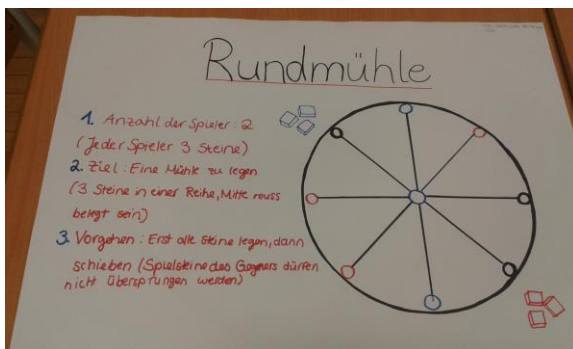 Rundmühle
1. Anzahl der Spieler: 2
(Jeder Spieler 3 Steine)
2. Ziel: Eine Mühle zu legen
(3 Steine in einer Reihe, Mitte muss
belegt sein)
3. Vorgehen: Erst alle Steine legen, dann
schieben (Spielsteine des Gegners dürfen
nicht übersprungen werden)